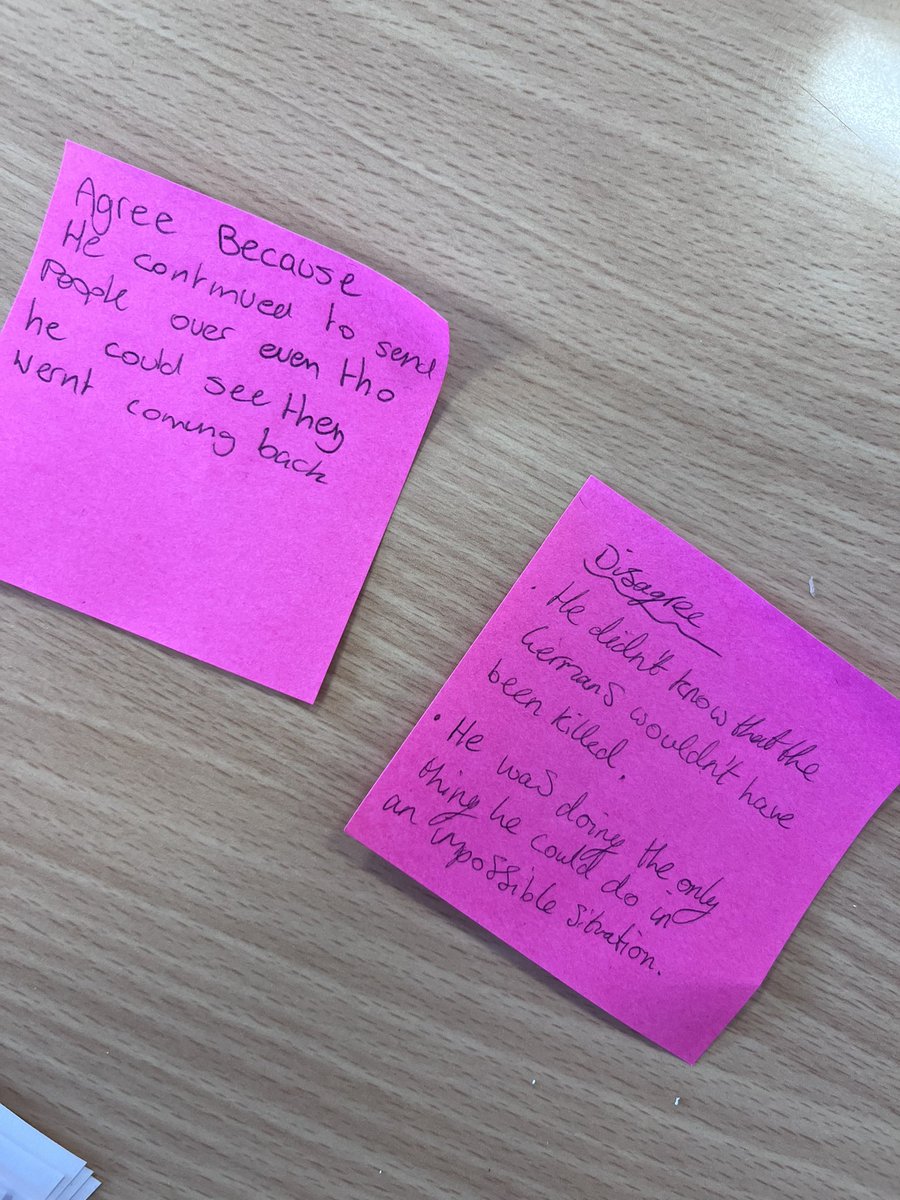 Agree Because
He continued to send
People over even tho
he could see they
wernt coming back
Disagree
• He didn't know that the
Germans wouldn't have
been killed.
• He was doing the only
thing he could do in
an impossible situation.